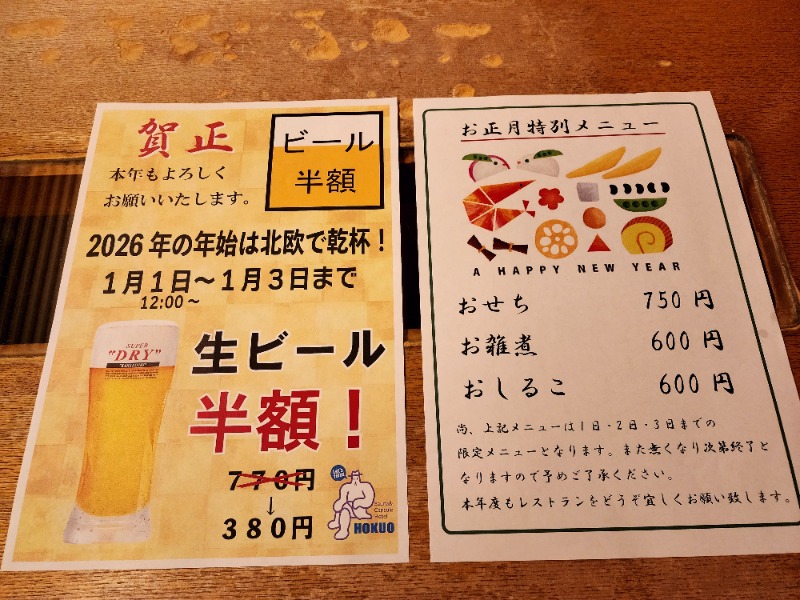 賀正
本年もよろしく
お願いいたします。
ビール
半額
2026年の年始は北欧で乾杯！
1月1日～1月3日まで
12:00～
SUPER
"DRY"
生ビール
半額！
770円
↓
380円
Sauna&
Capsule
Hotel
HOKUO
お正月特別メニュー
A HAPPY NEW YEAR
おせち 750円
お雑煮 600円
おしるこ 600円
尚、上記メニューは1日・2日・3日までの
限定メニューとなります。また無くなり次第終了と
なりますので予めご了承ください。
本年度もレストランをどうぞ宜しくお願い致します。